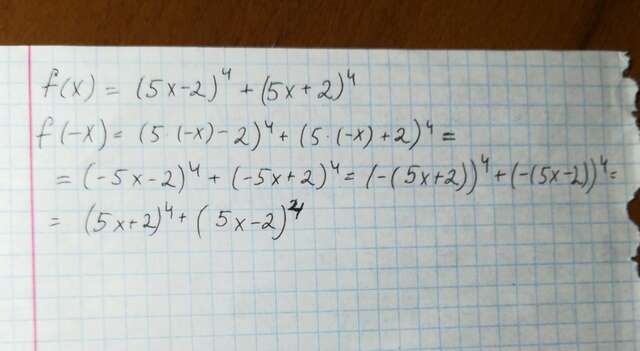 f(x) = (5x-2)⁴ + (5x+2)⁴
f(-x) = (5·(-x)-2)⁴ + (5·(-x)+2)⁴ =
= (-5x-2)⁴ + (-5x+2)⁴ = (-(5x+2))⁴ + (-(5x-2))⁴ =
= (5x+2)⁴ + (5x-2)⁴